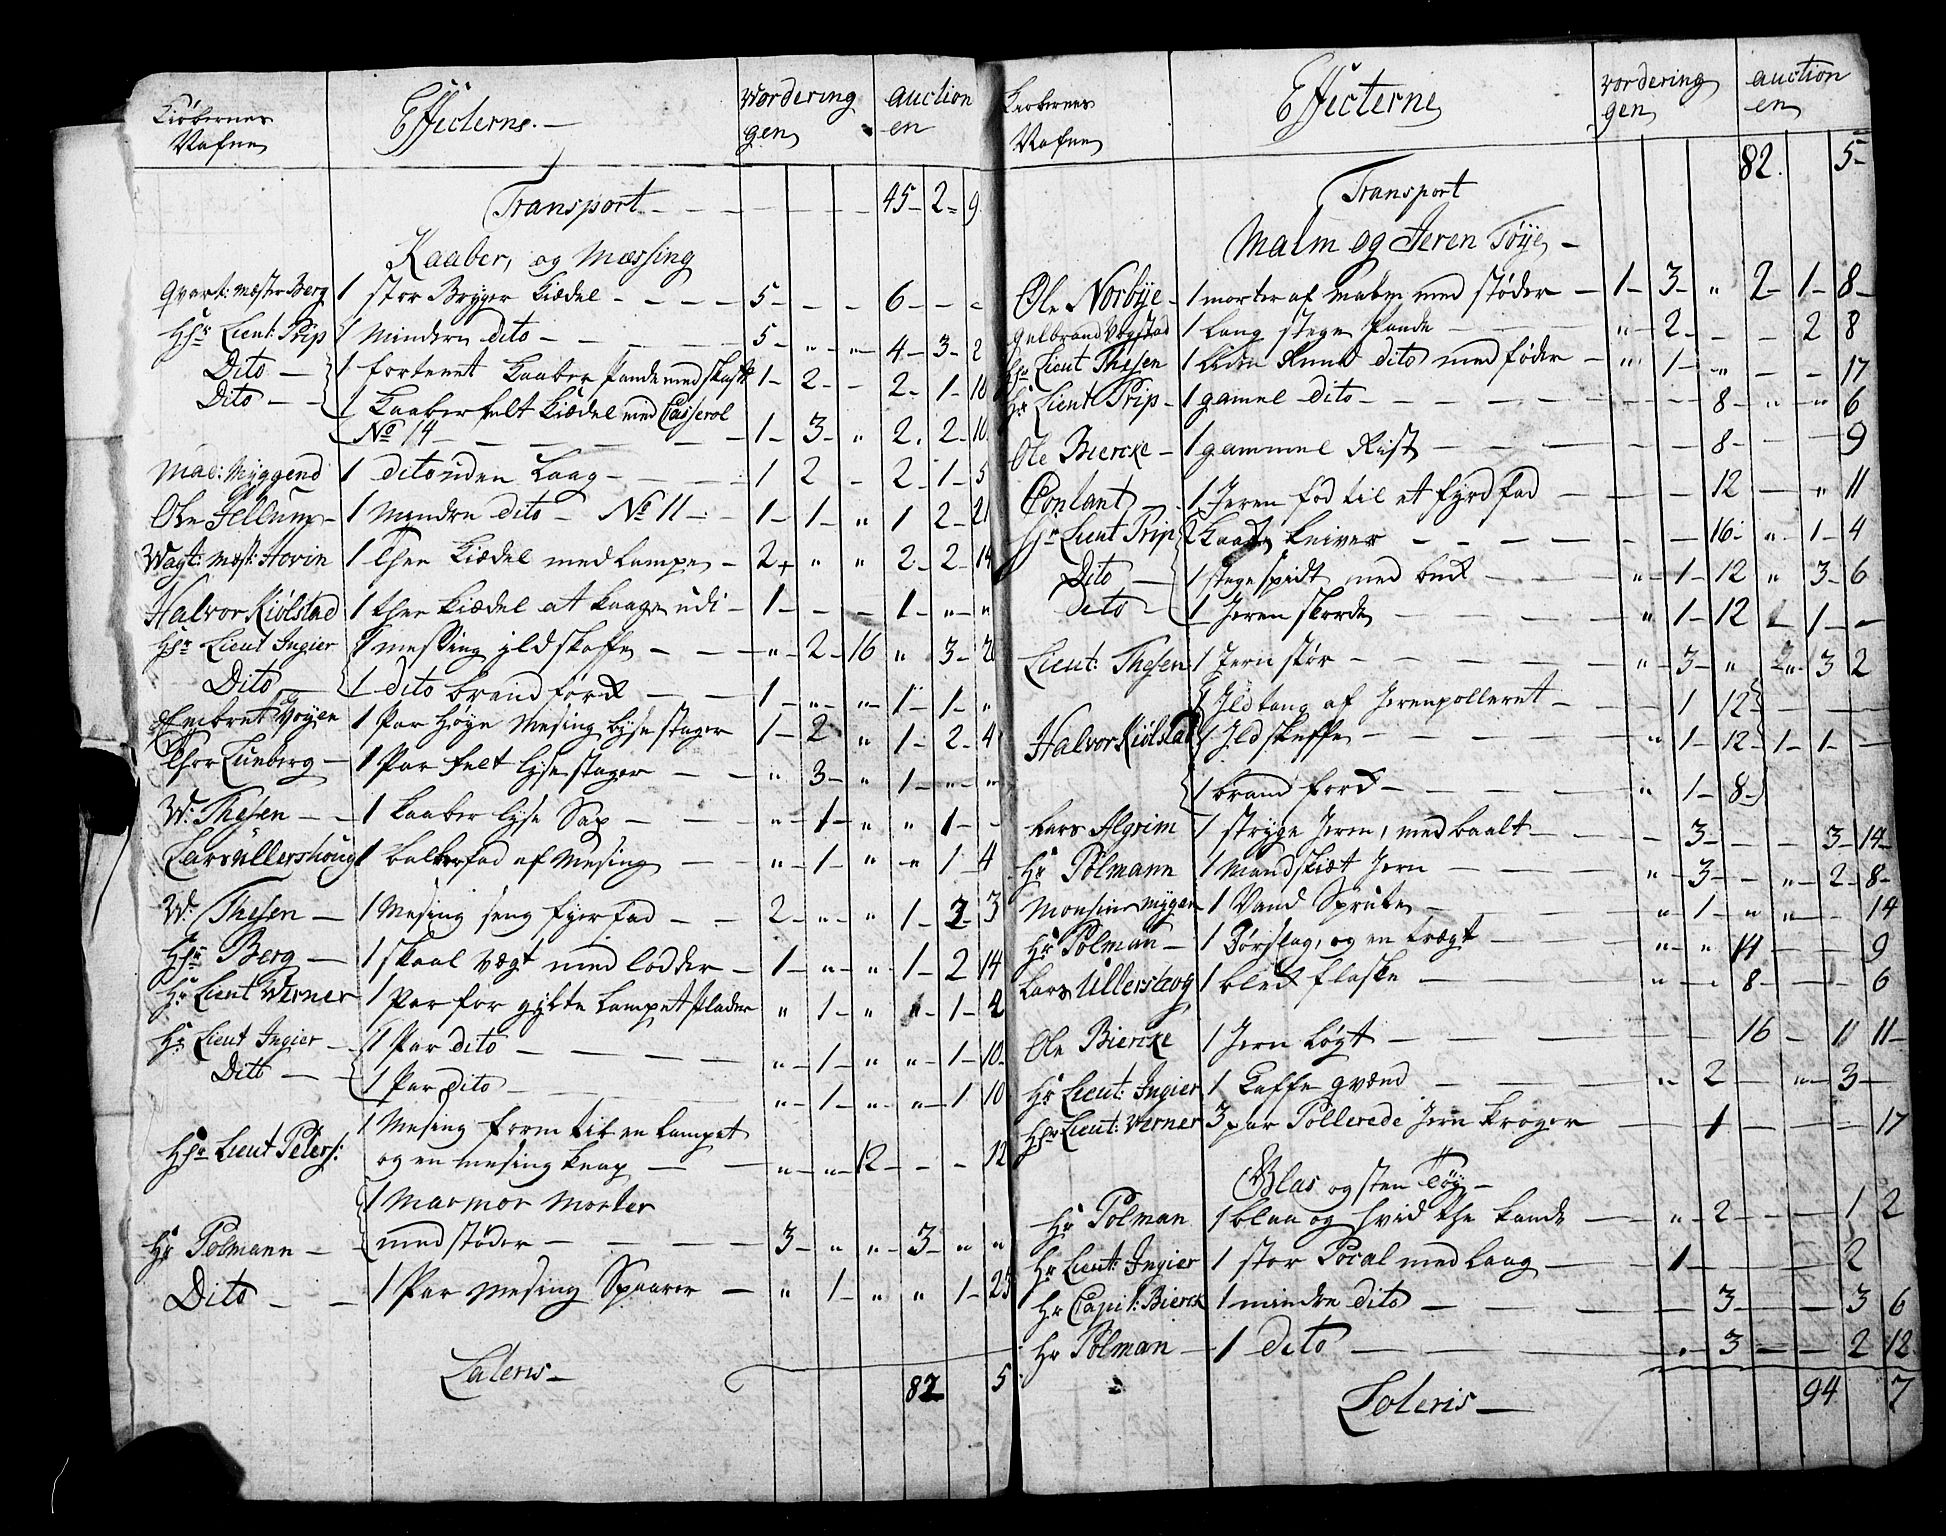 Kiøbernes Nafne Effecterne.— Vordering gen auction en
Transport — 45 — 2 — 9
Kaaber, og Messing
Qvart: mæster Berg 1 stor Brygger Kiædel — 5 — — 6 — —
Hr Lieut: Prip 1 mindere dito — 5 — „ — „ 4 — 3 — 2
Dito — 1 fortenet Kaaber Pande med skaft 1 — 2 — — 2 — 1 — 10
Dito — 1 Kaaber felt Kiædel med Casserol
No 14 — 1 — 3 — „ 2 — 2 — 10
Mad: Myggend 1 dito uden Laag — 1 2 — 2 — 1 — 5
Ole Jellum — 1 Mindre dito — No 11 — 1 — 1 — „ 1 2 — 21
Wagt: mæst: Hovin 1 Thee Kiædel med Lampe — 2 „ „ 2 — 2 — 14
Halvor Kiølstad 1 thee Kiædel at kaage udi — 1 — — — 1 — „ — „
Hr Lieut Ingier 1 messing ild skaffe — „ — 2 — 16 „ 3 — 20
Dito — 1 dito brand førk — 1 — „ — „ — 1 — 1 — „
Embret Voyen 1 Par Høye Mesing Lysestager 1 — 2 „ 1 — 2 — 4
Thor Lunberg — 1 Par felt lysestager — „ — 3 — „ 1 — „ — „
W: Thesen — 1 Kaaber lyse Sax — „ — 1 — „ „ 1 — —
Lars Ullershoug 1 balberfad af Mesing — „ — 1 — „ „ 1 — 4
W: Thesen — 1 Mesing seng fyrfad — 2 — „ — „ 1 — 2 — 3
Hr Berg — 1 skaal vægt med lodder — 1 — „ — „ 1 — 2 14
Hr Lieut Werner 1 Par for gylte Lampet Plader „ 1 — „ „ — 1 — 4
Hr Lieut Ingier — 1 Par dito — „ — 1 — „ „ — 1 — 10
Dito — 1 Par dito — „ — 1 — „ — „ — 1 10
1 Mesing form til en Lampet
Hr Lieut Peters: og en mesing knap — „ — „ — 12 — — — 12
1 Marmor Morter
Hr Polmann — med støder — 3 — „ „ — 3 — „ „
Dito — 1 Par Mesing Spaarer — „ 1 — „ „ 1 — 25
Lateris — 82 5
Kiøbernes Nafne Effecterne Vordering gen auction en
Transport 82. 5 —
Malm og Jeren Tøye —
Ole Norbye — 1 morter af Malm med støder — 1 — 3 — „ 2 — 1 — 8 —
Gulbrand Vogstad 1 Lang stege Pande — „ — 2 — — — 2 8
Hr Lieut Thesen 1 Liden Rund dito med føder — „ 1 — „ — — 17
Hr Lieut Prip — 1 gamel dito — 8 — „ — „ 6
Ole Biercke — 1 gammel Rist — 8 — — — 9
Conlant — 1 Jeren fod til et fyrd fad — 12 — „ 11
Hr Lieut Prip 2 kniver — 16 — „ 1 — 4
Dito — 1 stegespidt med buk — „ — 1 — 12 „ 3 — 6
Dito — 1 Jeren skorde — „ 1 — 12 1 — —
Lieut: Thesen 1 Jern stør — „ — 3 — „ 3 2
1 Ildtang af Jeren polleret — 1 12
Halvor Kiølstad 1 Ildskuffe — „ 1 — 12 — 1 — 1 —
1 brand fork — „ 1 — 8 —
Lars Algrim 1 stryge Jern, med baalt — 3 — — — 3 — 14 —
Hr Polmann 1 Mandskiæt Jern — „ — 3 — — „ — 2 — 8 —
Monsiur Mygen — 1 Vand Sprute — „ 1 — „ „ — — 14
Hr Polman — 1 Dørslag, og en trægt — „ — „ 14 — — 9
Lars Ullershoug 1 blek flaske — „ — 8 — — — 6
Ole Biercke 1 Jern Løgt — 16 — 11 —
Hr Lieut: Ingier 1 Caffe qværnd — „ — 2 — „ — 3 —
Hr Lieut: Werner 3 par Pollerede Jern kroger — 1 — — — 17
Glas og sten Tøy —
Hr Polman 1 blaa og hvid the kande — „ — 2 — — 1 2
Hr Lieut: Ingier 1 stor Pocal med Laag — 1 — — 2
Hr Capit: Bierck 1 mindre dito — 3 — — 3 6
Hr Polman — 1 dito — 3 — — 2 12
Lateris — 94 7